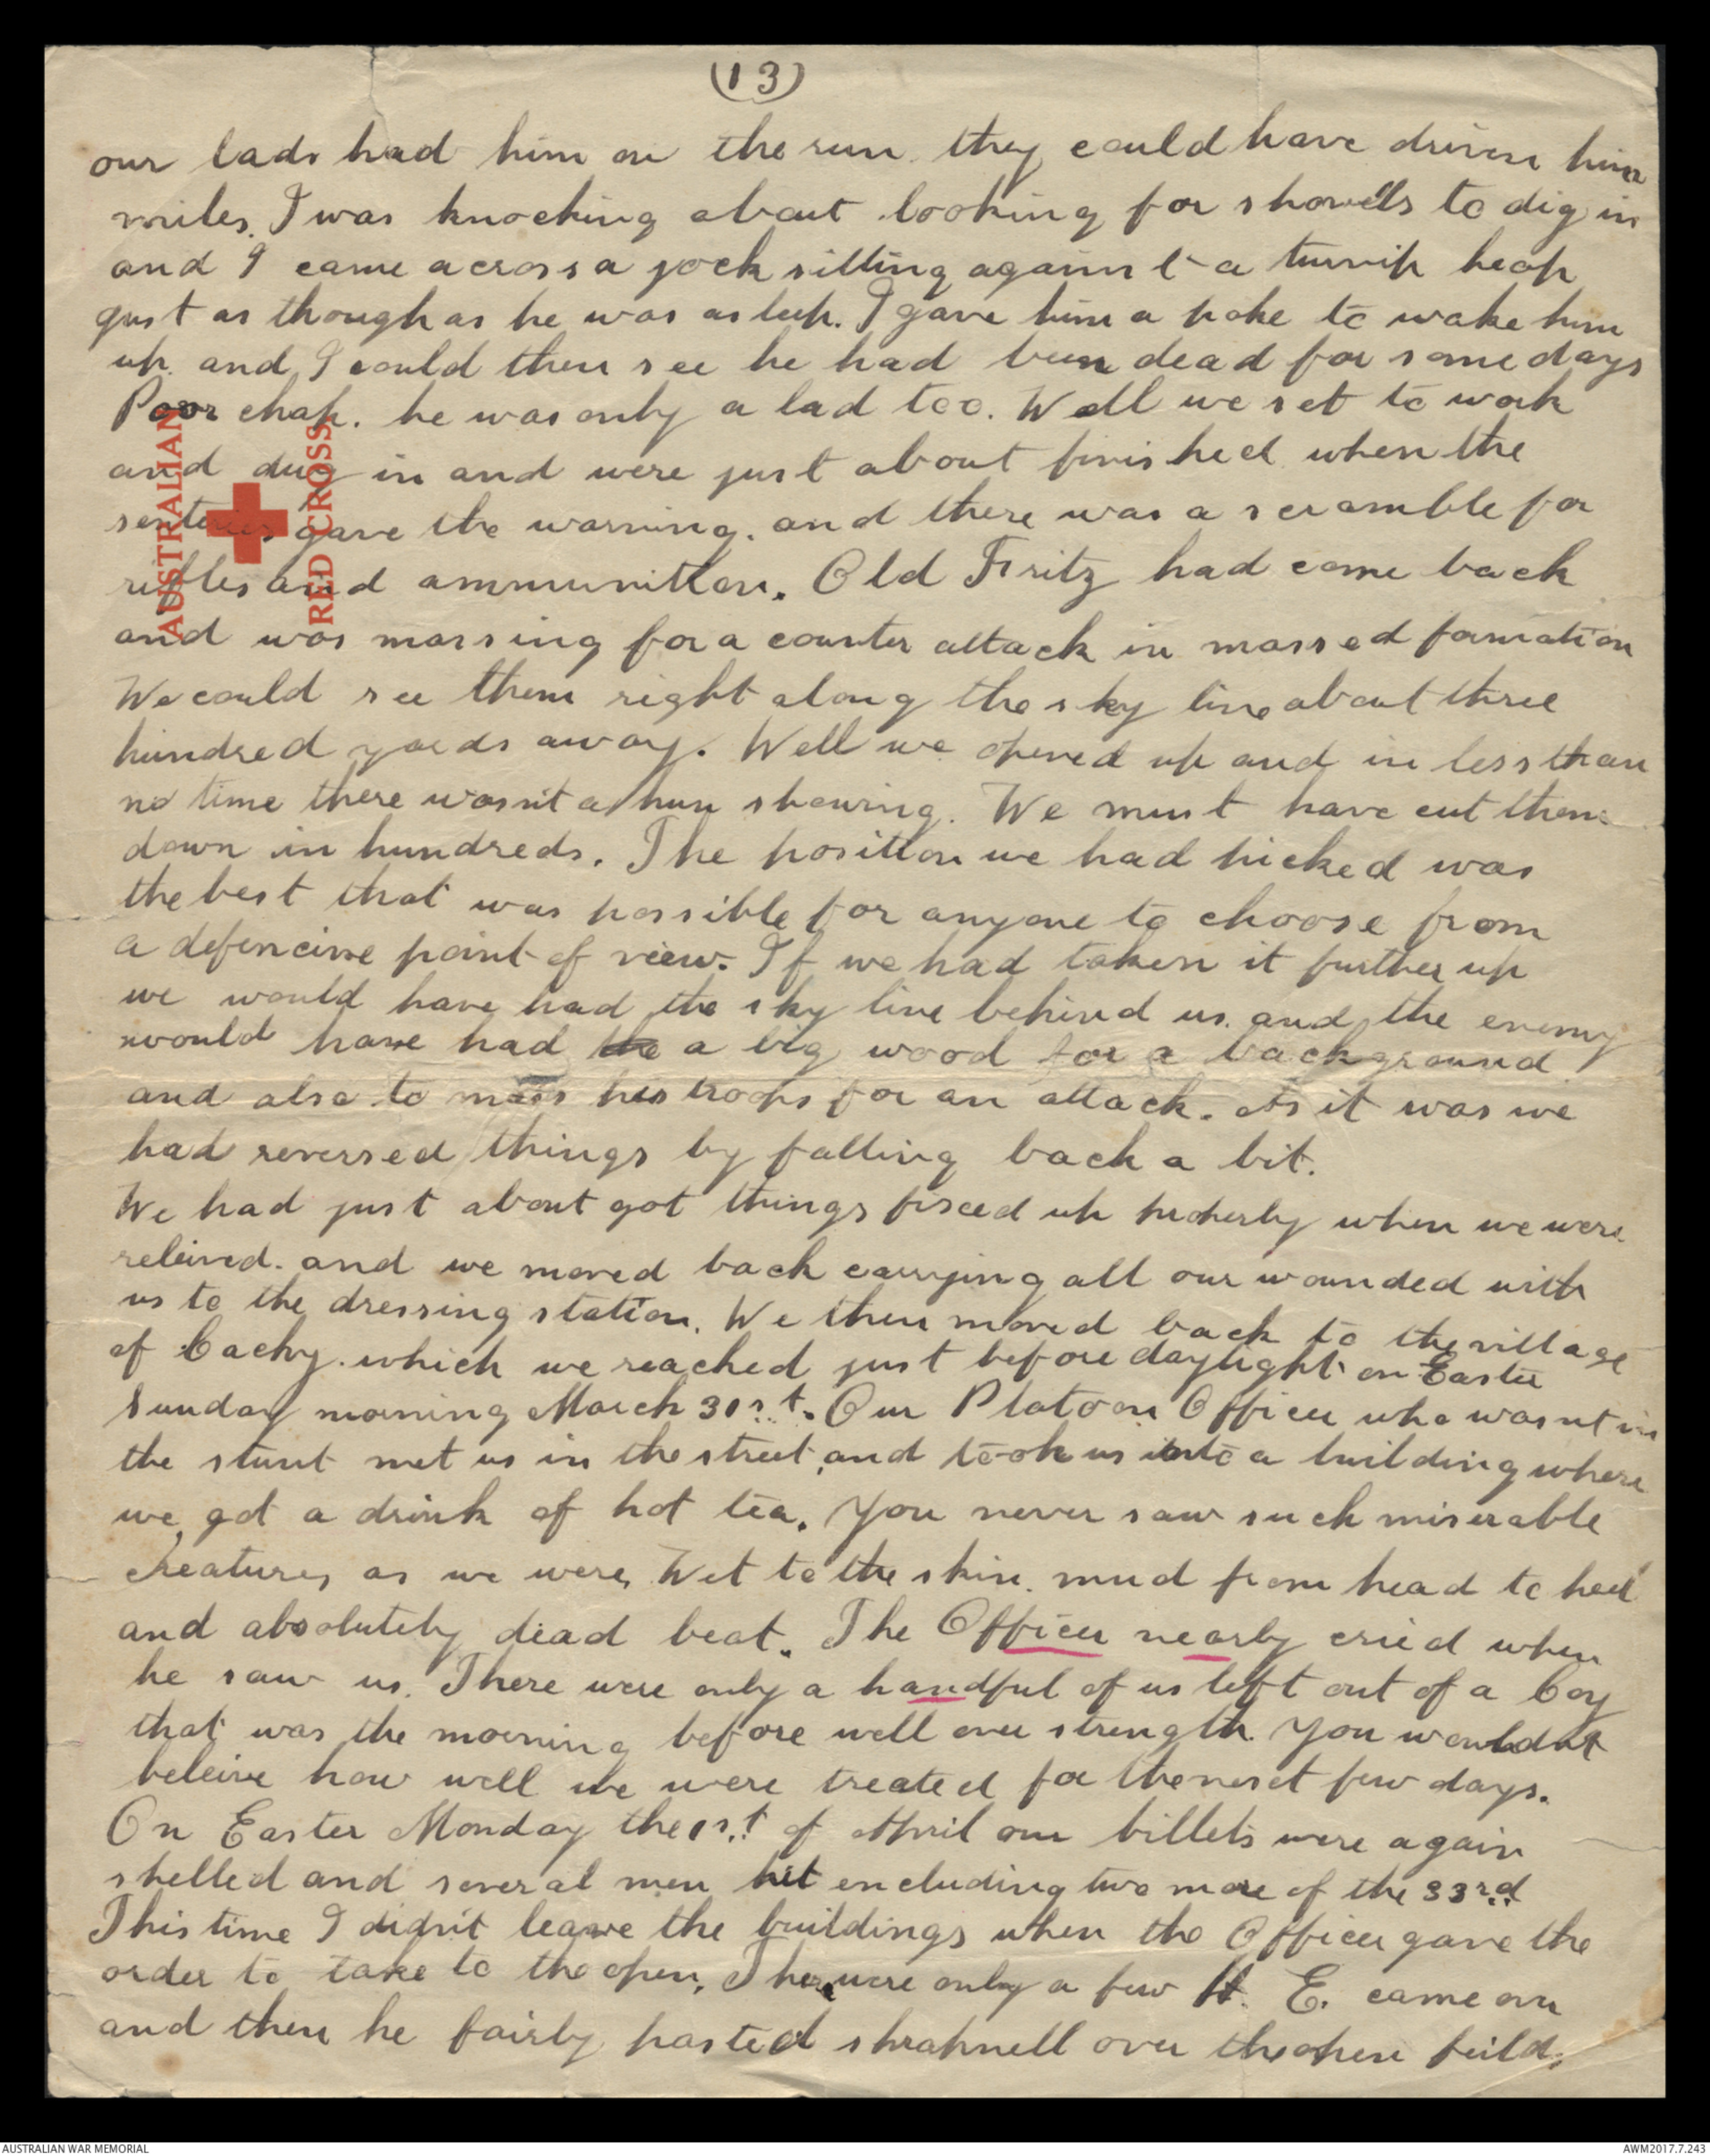 (13)
our lads had him on the run they could have driven him
miles. I was knocking about looking for shovells to dig in
and I came across a jock sitting against a turnip heap
just as though as he was asleep. I gave him a poke to wake him
up. and I could then see he had been dead for some days
Poor chap. he was only a lad too. Well we set to work
and dug in and were just about finished when the
sentries gave the warning. and there was a scramble for
rifles and ammunition. Old Fritz had come back
and was massing for a counter attack in massed formation
We could see them right along the sky line about three
hundred yards away. Well we opened up and in less than
no time there wasn't a hun showing. We must have cut them
down in hundreds. The position we had picked was
the best that was possible for anyone to choose from
a defencive point of view. If we had taken it further up
we would have had the sky line behind us. and the enemy
would have had the a big wood for a background
and also to mass his troops for an attack. As it was we
had reversed things by falling back a bit.
We had just about got things fixed up properly when we were
releived. and we moved back carrying all our wounded with
us to the dressing station. We then moved back to the village
of Cachy. which we reached just before daylight on Easter
Sunday morning March 31st. Our Platoon Officer who wasnt in
the stunt met us in the street, and took us into a building where
we got a drink of hot tea. You never saw such miserable
creatures as we were, Wet to the skin. mud from head to heel
and absolutely dead beat. The Officer nearly cried when
he saw us. There were only a handful of us left out of a Coy
that was the morning before well over strength. You wouldnt
beleive how well we were treated for the next few days.
On Easter Monday the 1st of April our billets were again
shelled and several men hit encluding two more of the 33rd
This time I didn't leave the buildings when the Officer gave the
order to take to the open. There were only a few H. E. came over
and then he fairly pasted shrapnell over the open feild.
AUSTRALIAN
RED CROSS
AUSTRALIAN WAR MEMORIAL
AWM2017.7.243